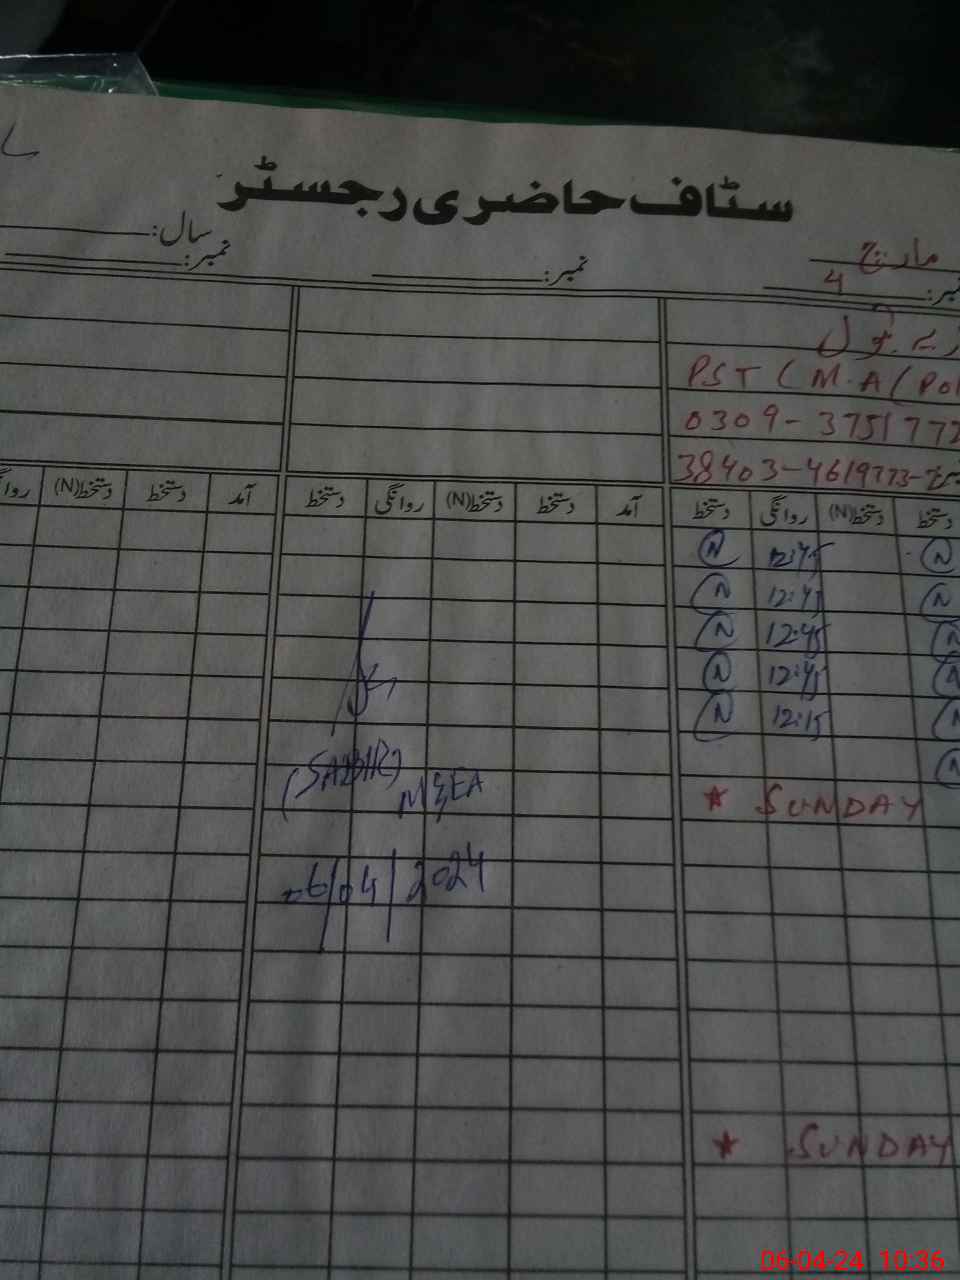 سٹاف حاضری رجسٹر
مارچ
سال:
نمبر: 4
نمبر:
نمبر:
PST (M.A (Pol
0309-3751777
38403-4619773-
دستخط دستخط(N) روانگی دستخط
آمد دستخط دستخط(N) روانگی دستخط
آمد دستخط دستخط(N) روانگی
N 12:45 N
N 12:45 N
N 12:45 N
N 12:45 N
N 12:15 N
N
(SABIR)
M&EA
* SUNDAY
06/04/2024
* SUNDAY
06-04-24 10:36